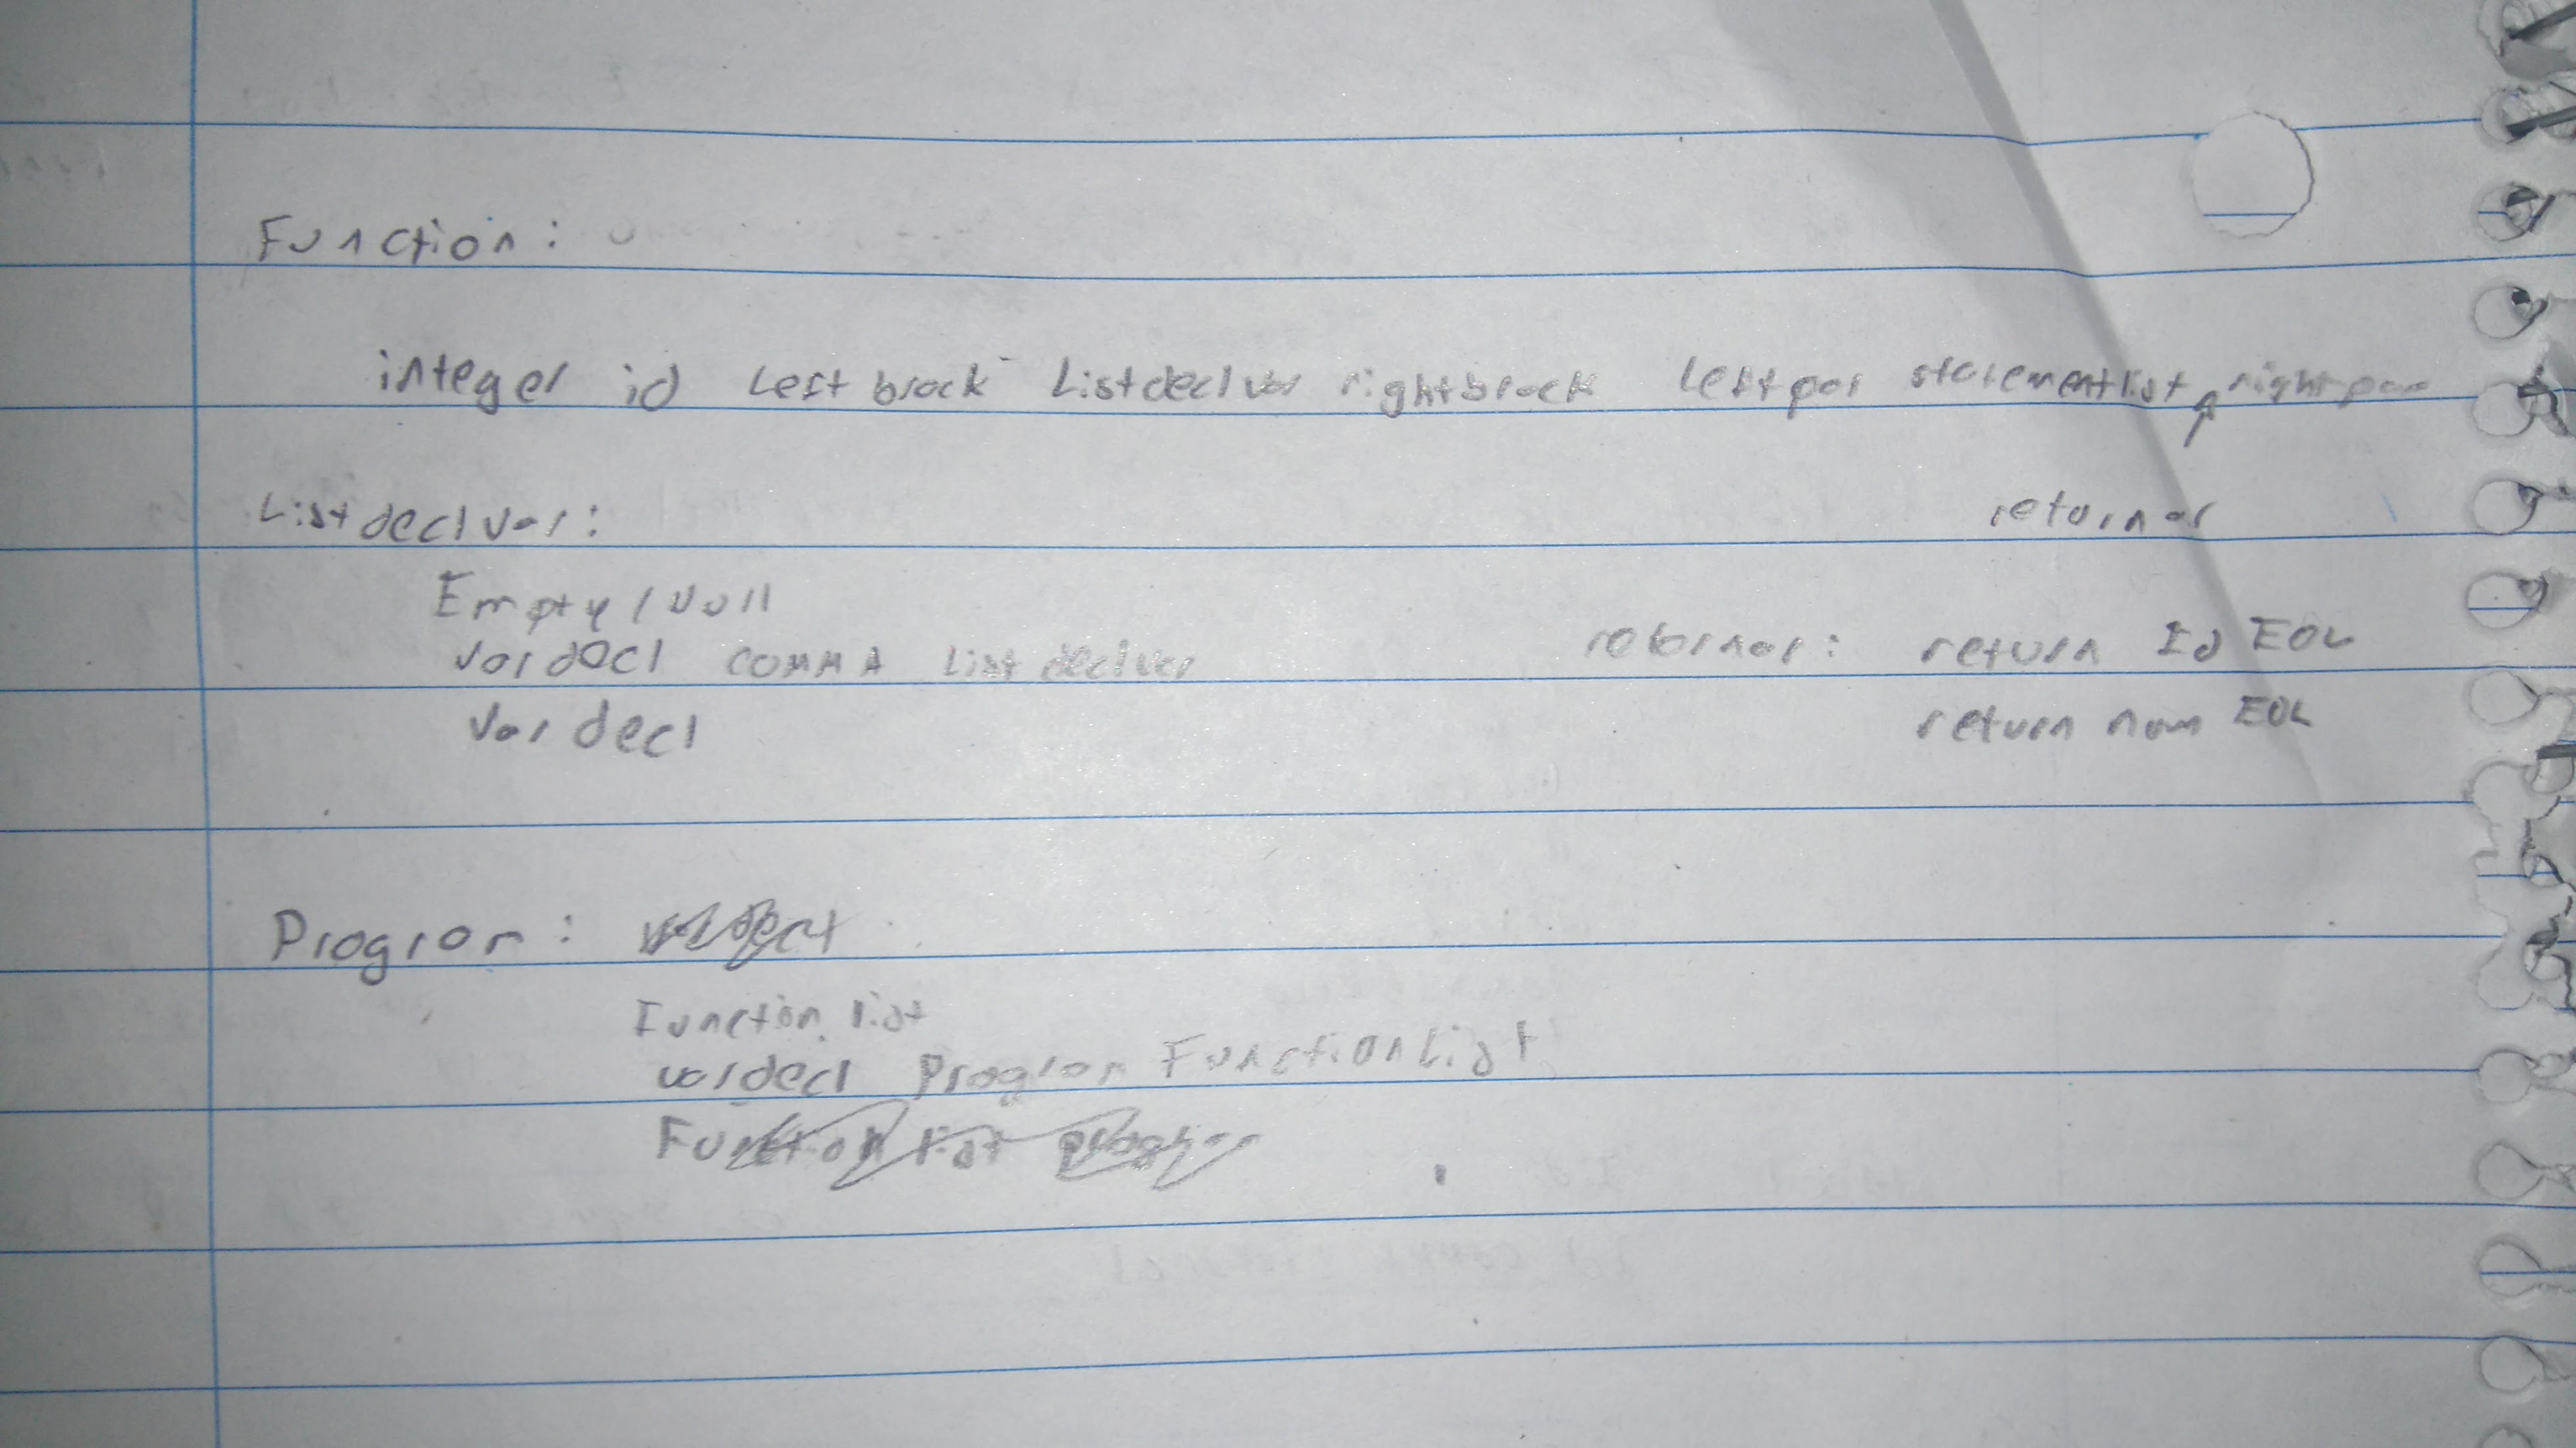 Function:
integer id Left brack Listdeclvar rightbrack leftpar statementlist rightpar
returnar
Listdeclvar:
Empty / Null
vardecl COMMA Listdeclvar
Vardecl
returnar: return Id EOL
return num EOL
Program:
Function list
vardecl Program FunctionList
Function list program